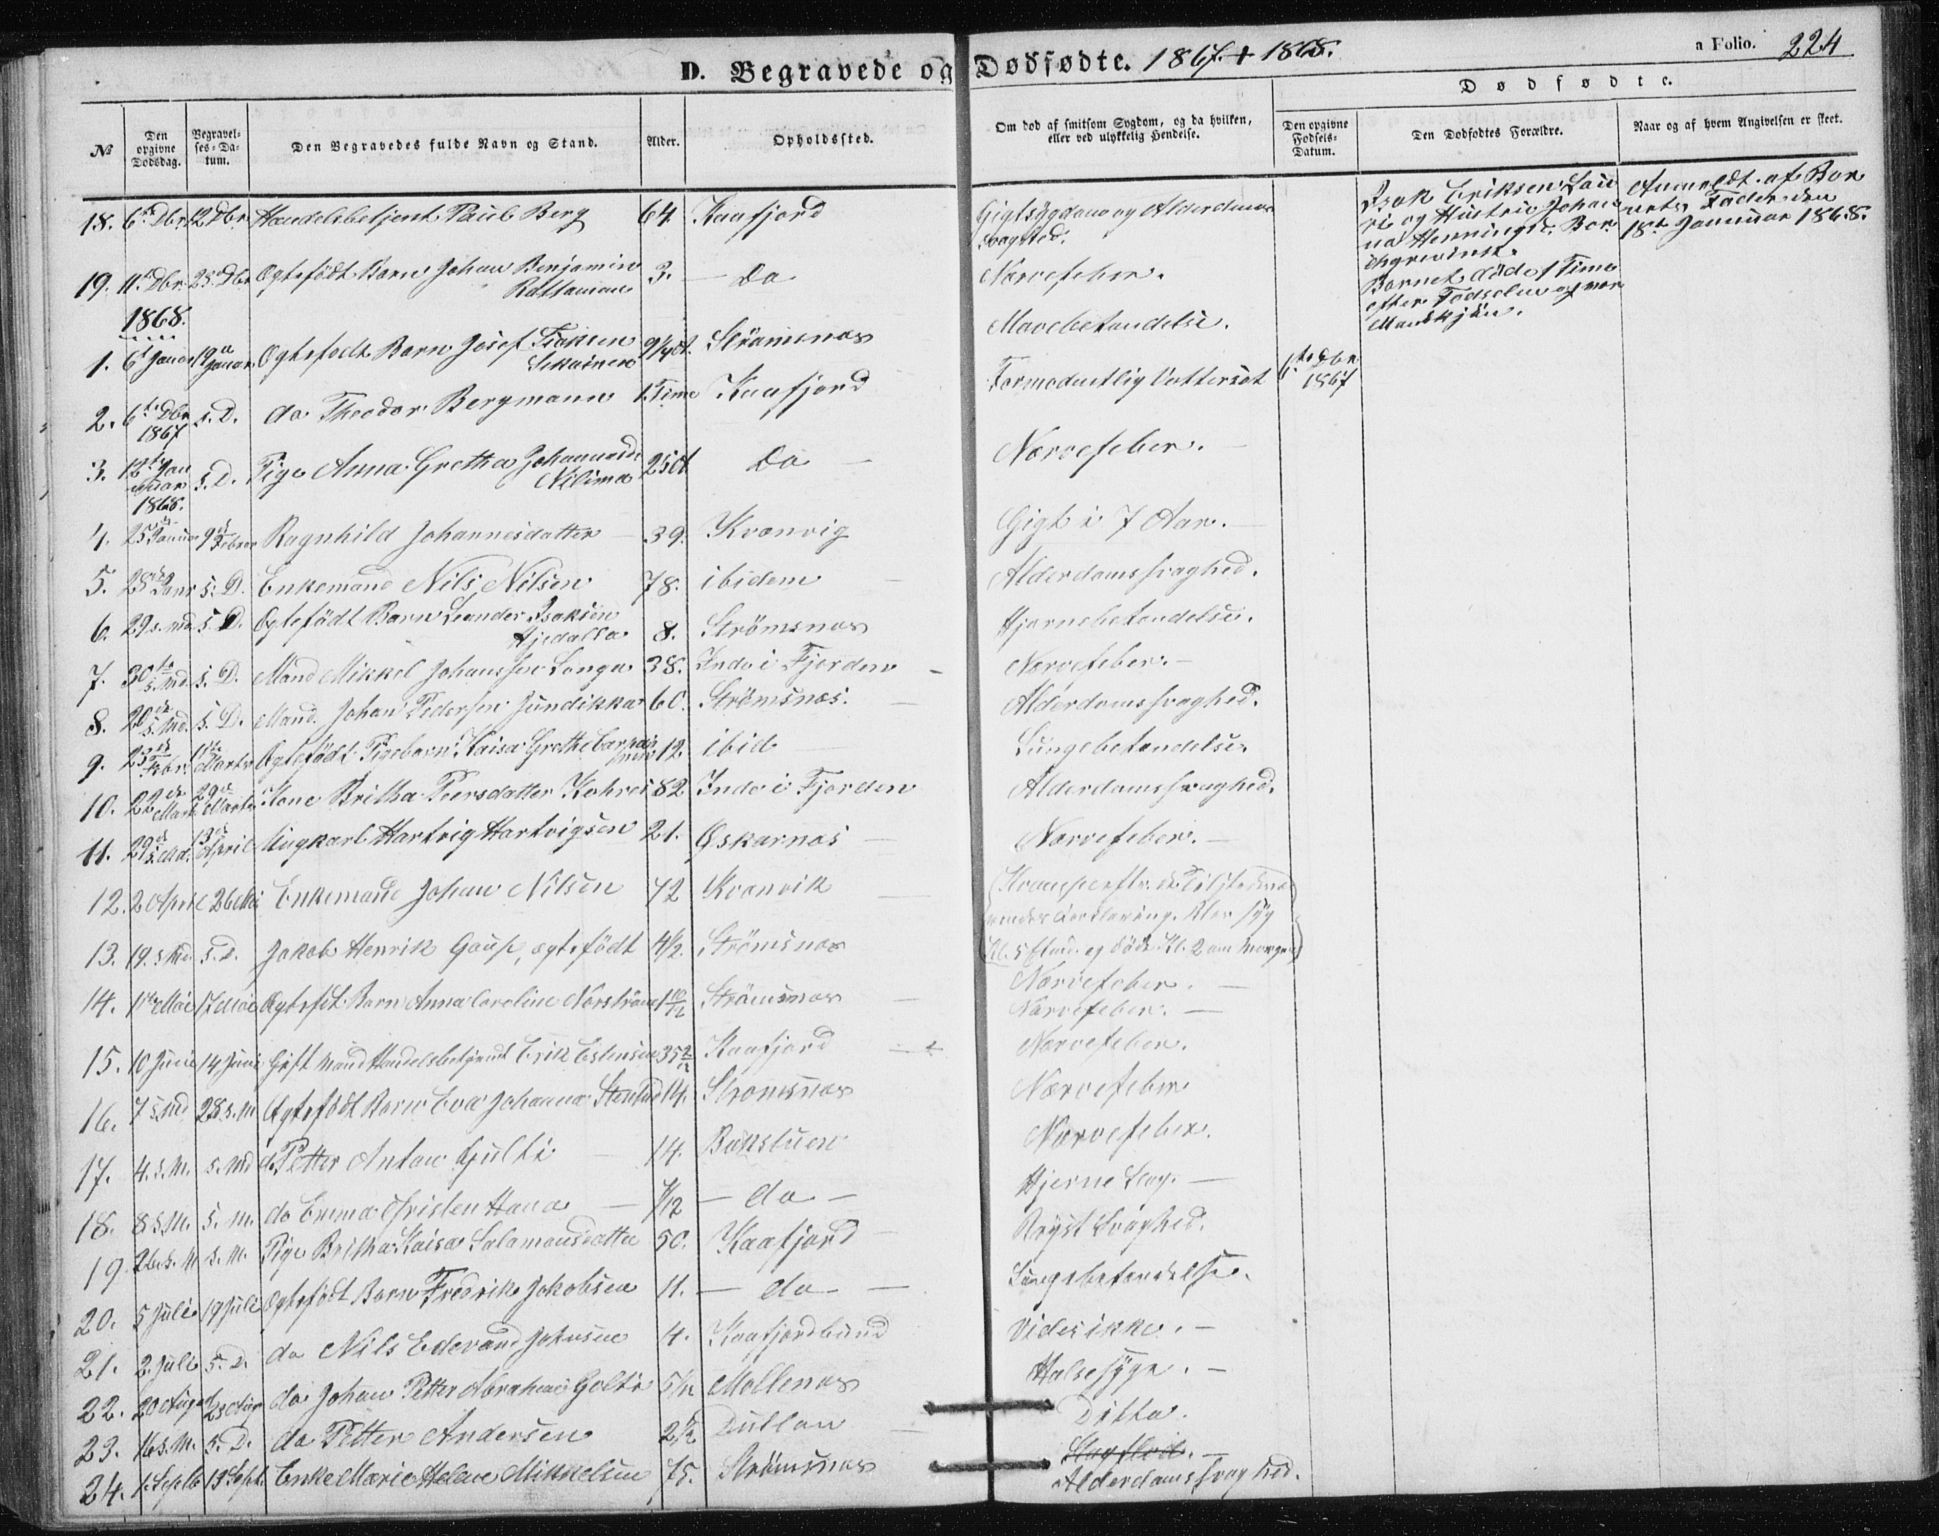 D. Begravede og Dødfødte. 1867 + 1868.
a Folio. 224
Dødfødte.
№ Den opgivne Dødsdag. Begravelses-Datum. Den Begravedes fulde Navn og Stand. Alder. Opholdssted. Om død af smitsom Sygdom, og da hvilken, eller ved ulykkelig Hendelse. Den opgivne Fødsels-Datum. Den Dødfødtes Forældre. Naar og af hvem Angivelsen er skeet.
18. 6te Dbr. 12 Dbr. Handelsbetjent Paul Berg 64 Kaafjord Gigtsygdom og Alderdoms svaghed.
Isak Eriksen
og Hustrue Johan
na Henningsd.
Barnet døde 1 Time
efter Fødselen og var
Mandkjøn.
Anmeldt af Bar
nets Fader den
18de Januar 1868.
19. 11te Dbr. 25 Dbr. Ægtefødt Barn Johan Benjamin
Rattaman 3. Do Nervefeber.
1868.
1. 6te Januar 19de Januar Ægtefødt Barn Josef Isaksen
9 1/4 Strømsnæs Mavebetændelse.
2. 6te Dbr. 1867 s. D. do Theodor Bergmann 1 Time Kaafjord Formodentlig Vattersot 6te Dbr. 1867
3. 12te Januar 1868. s. D. Pige Anna Gretha Johannesd.
Nilima 25 Do Nervefeber.
4. 25de Januar 9de Februar Ragnhild Johannesdatter 39. Kvænvig Gigt i 7 Aar.
5. 25de Janr s. D. Enkemand Nils Nilsen 78. ibidem Alderdomssvaghed.
6. 29 s. Md. s. D. Ægtefødt Barn Leander Isaksen
Hjedalla 8. Strømsnæs Hjernebetændelse.
7. 30te s. Md. s. D. Mand Mikkel Johanssen Longa 38. Inde i Fjorden Nervefeber.
8. 20de s. Md. s. D. Mand Johan Pedersen Jundikka 60. Strømsnæs. Alderdomssvaghed.
9. 23de Febr. 1ste Marts Ægtefødt Pigebarn Kaisa Grethe 12. ibid Lungebetændelse
10. 22de Marts 29de Marts Kone Britha Peersdatter 82 Inde i Fjorden Alderdomssvaghed.
11. 29de s. Md. 13de April Ungkarl Hartvig Hartvigsen 21. Oskarnæs Nervefeber.
12. 2 April 26 Mai Enkemand Johan Nilsen 72 Kvænvik
Kl. 5 Efterm. og døde Kl. 2 om Morgen
13. 19. s. Md. s. D. Jakob Henrik Gaup, ægtefødt 4 1/2. Strømsnæs Nervefeber.
14. 11te Mai 17 Mai Ægtefdt. Barn Anna Caroline Norstrøm 1 10/12 Strømsnæs Nervefeber.
15. 10 Juni 14 Juni Gift Mand Handelsbetjent Erik Estensen 35 2/12 Kaafjord Nervefeber.
16. 7 s. Md 28 s. M. Ægtefødt Barn Eva Johanna 14. Strømsnæs Nervefeber
17. 4. s. M. s. Md do Petter Anton Gulti 14. Bækstuen Nervefeber.
18. 8 s. M. s. M. do Emma Christen Hana 7/12 do Hjerne Slag.
19. 26. s. M s. M. Pige Britha Kaisa Salamonsdatter 50. Kaafjord Bryst Svaghed.
20. 5 Juli 19 Juli Ægtefødt Barn Fredrik Jakobsen 11. do Lungebetændelse.
21. 2 Juli s. D. do Nils Edevard Johnsen 4. Kaafjordbund Vides ikke.
22. 20 August 23 Aug do Johan Petter Abraham Golti 5/12 Møllenæs Halsesyge.
23. 16 s. M. s. D. do Petter Andersen 2 1/2 Ditto.
24. 1 Septb 13 Sept. Enke Marie Helene Mikkelsen 75. Strømsnæs Alderdomssvaghed.